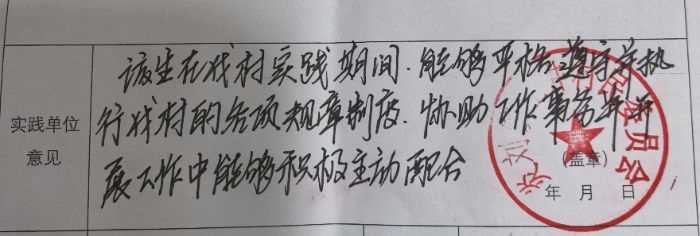 该生在我村实践期间，能够严格遵守并执
行我村的各项规章制度，协助工作事务开
展工作中能够积极主动配合
实践单位
意见
(盖章)
年 月 日
委员会